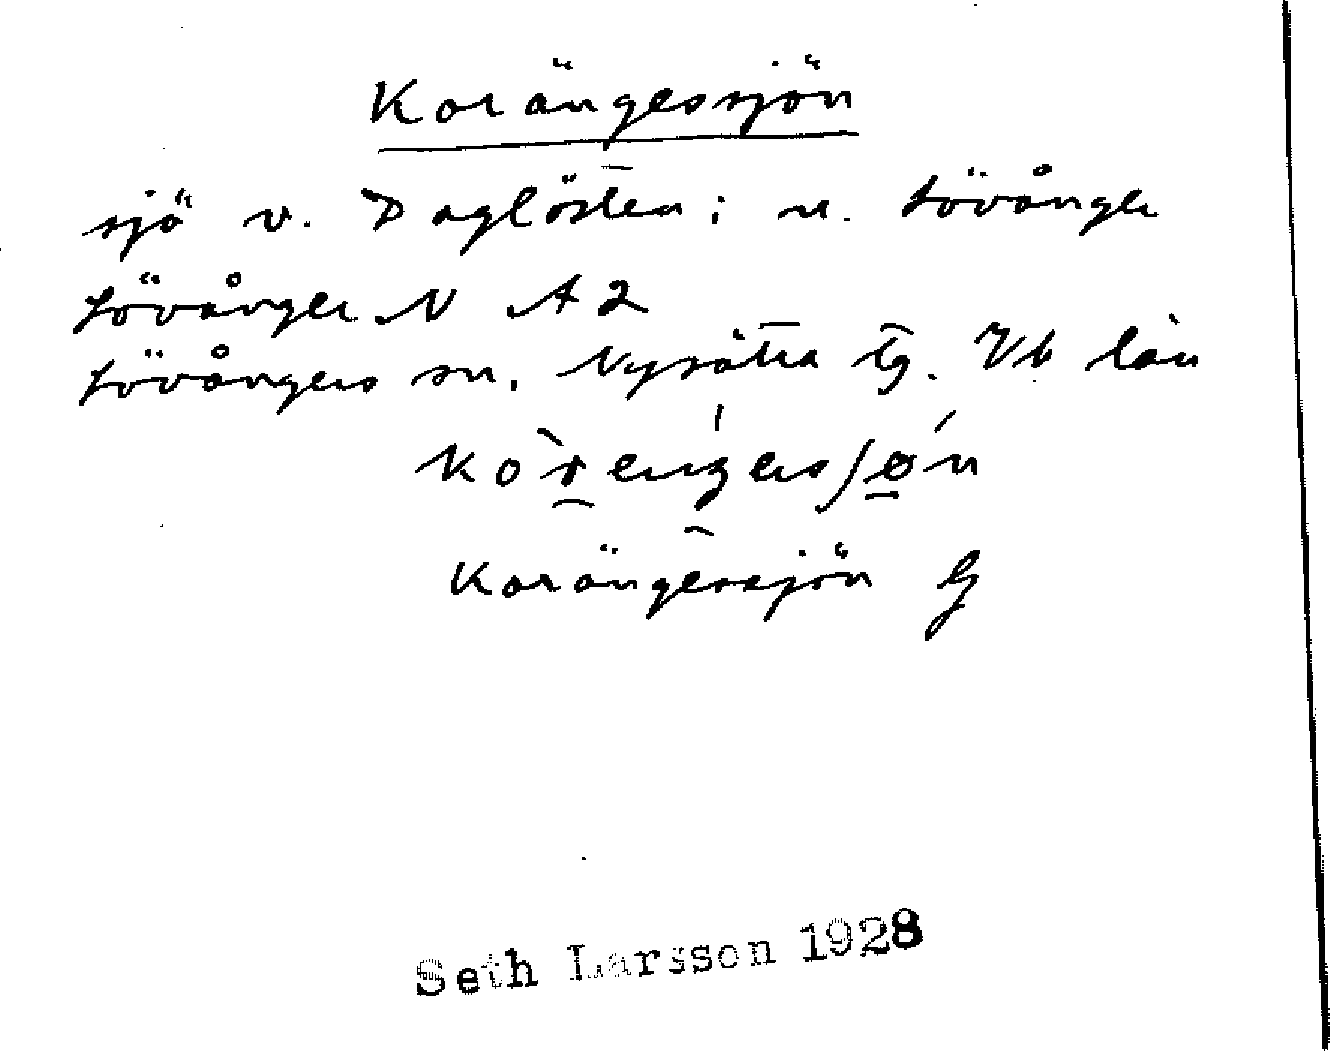 Korängessjön
sjö v. Daglösten; n. Lövånger
Lövånger N A 2
Lövångers sn. Nysätra tg. Vb län
Korängessjön G
Seth Larsson 1928